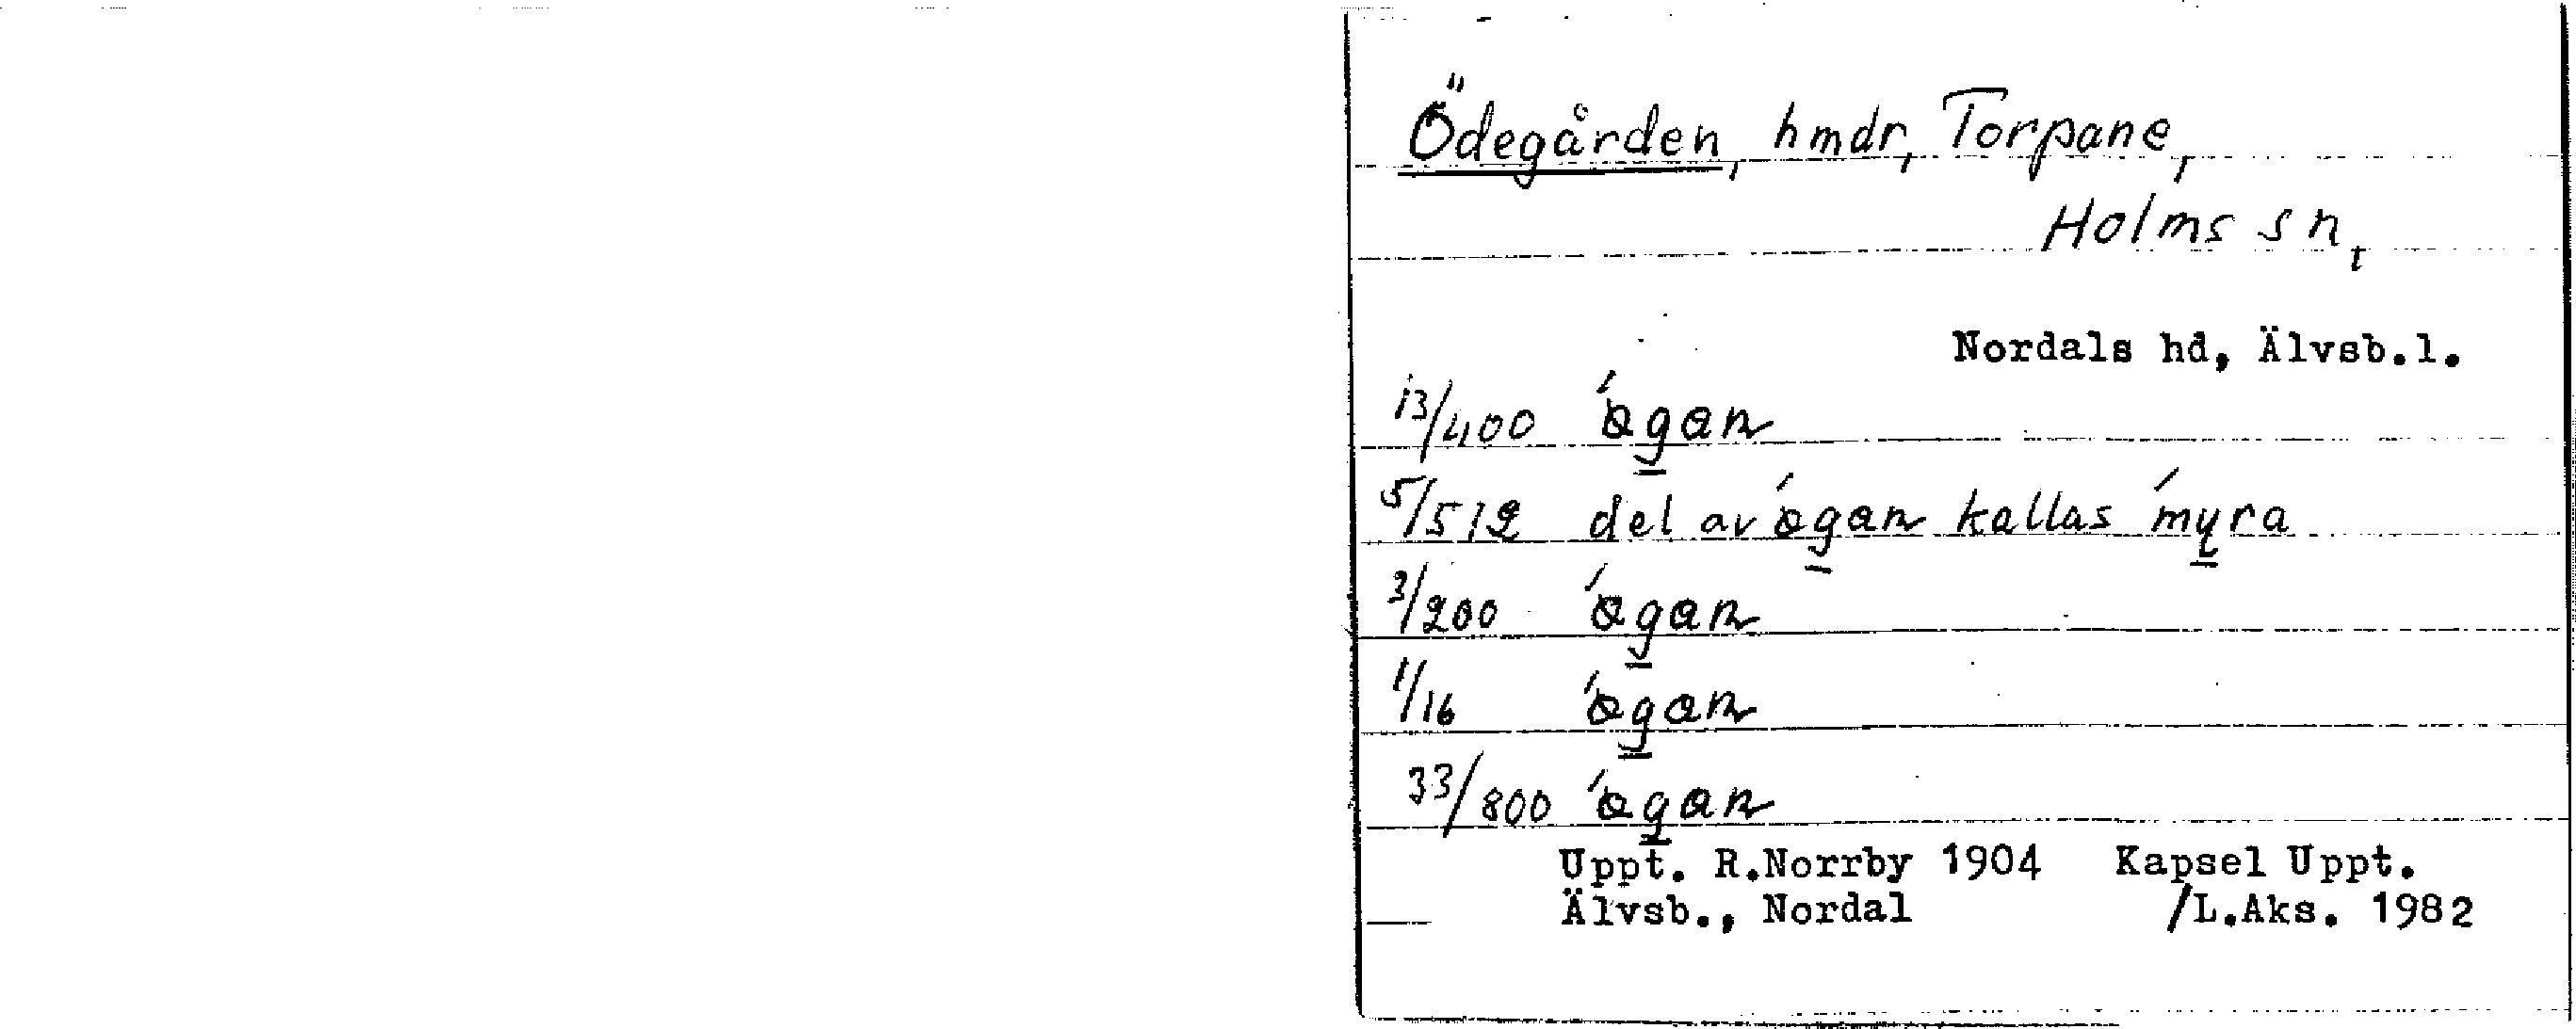 Ödegården, hmdr, Torpane,
Holms sn,
Nordals hd, Älvsb.l.
13/400
5/512 del av kallas myra
3/200
1/16
33/800
Uppt. R.Norrby 1904 Kapsel Uppt.
Älvsb., Nordal /L.Aks. 1982